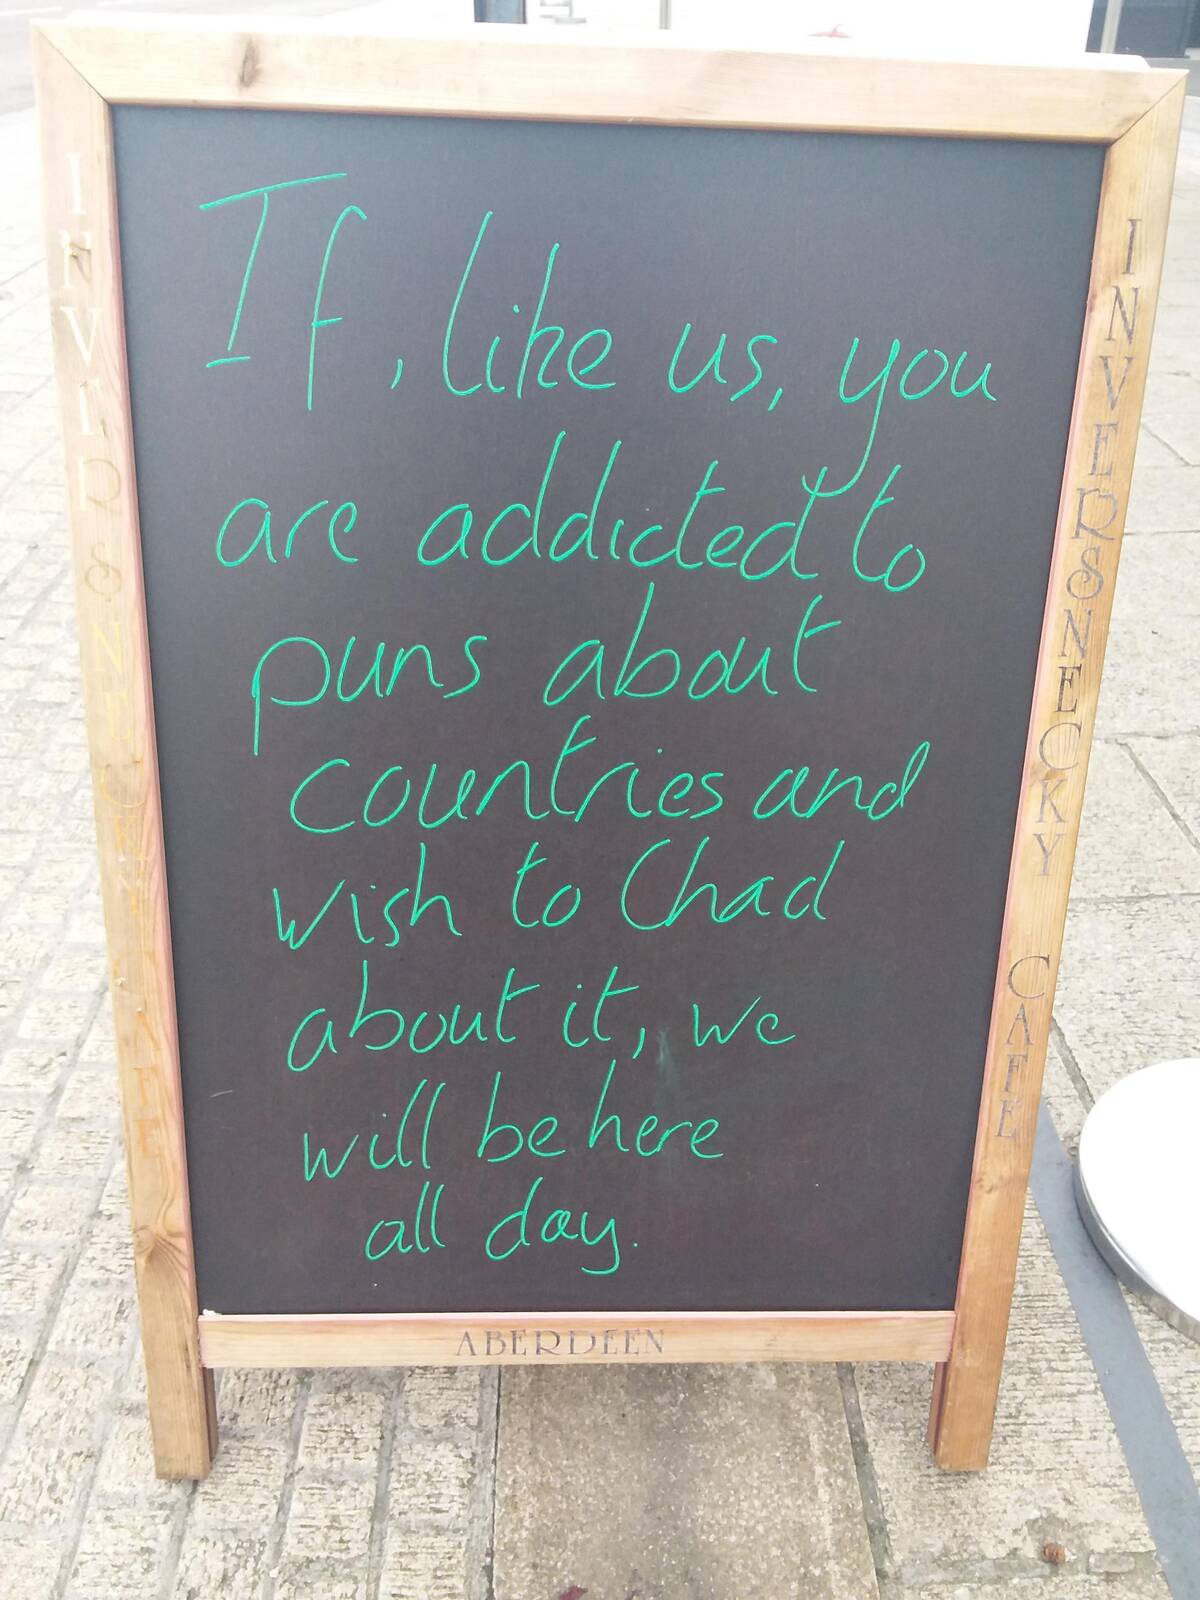 If, like us, you
are addicted to
puns about
countries and
wish to Chad
about it, we
will be here
all day.
INVERSNECKY CAFE
INVERSNECKY CAFE
ABERDEEN